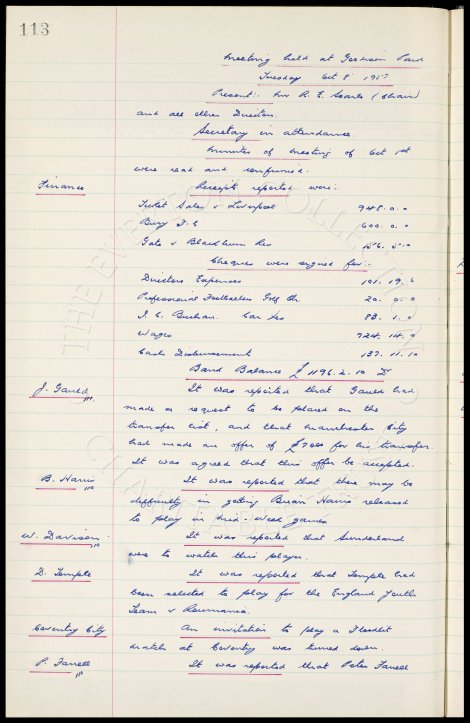 113
Meeting held at Goodison Park
Tuesday Oct 8th 1957
Present:. Mr R. E. Searle (Chair)
and all other Directors.
Secretary in attendance.
Minutes of meeting of Oct 1st
were read and confirmed.
Finance
Receipts reported were:.
Ticket Sales v Liverpool 948.0.0
Bury F.C 600.0.0
Gate v Blackburn Res 156.5.0
Cheques were signed for:-
Directors Expenses 101.19.6
Professional Footballers Golf Ch 20.0.0
I. C. Buchan. Car 83.1.0
Wages 724.14.0
Cash Disbursement 137.11.10
Bank Balance £1196.2.10 D
J. Gauld
It was reported that Gauld had
made a request to be placed on the
transfer list, and that Manchester City
had made an offer of £7000 for his transfer.
It was agreed that this offer be accepted.
B. Harris
It was reported that there may be
difficulty in getting Brian Harris released
to play in mid-week games
W. Davison
It was reported that Sunderland
were to watch this player.
D. Temple
It was reported that Temple had
been selected to play for the England Youth
Team v Roumania.
Coventry City
An invitation to play a Floodlit
match at Coventry was turned down.
P. Farrell
It was reported that Peter Farrell
THE EVERTON COLLECTION
CHARITABLE TRUST